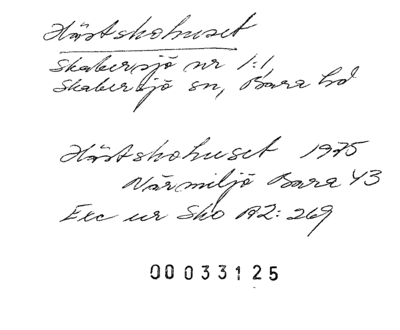 Hästskohuset
Skabersjö nr 1:1,
Skabersjö sn, Bara hd
Hästskohuset 1975
Närmiljö Bara 43
Exc ur Sko A2:269
00033125